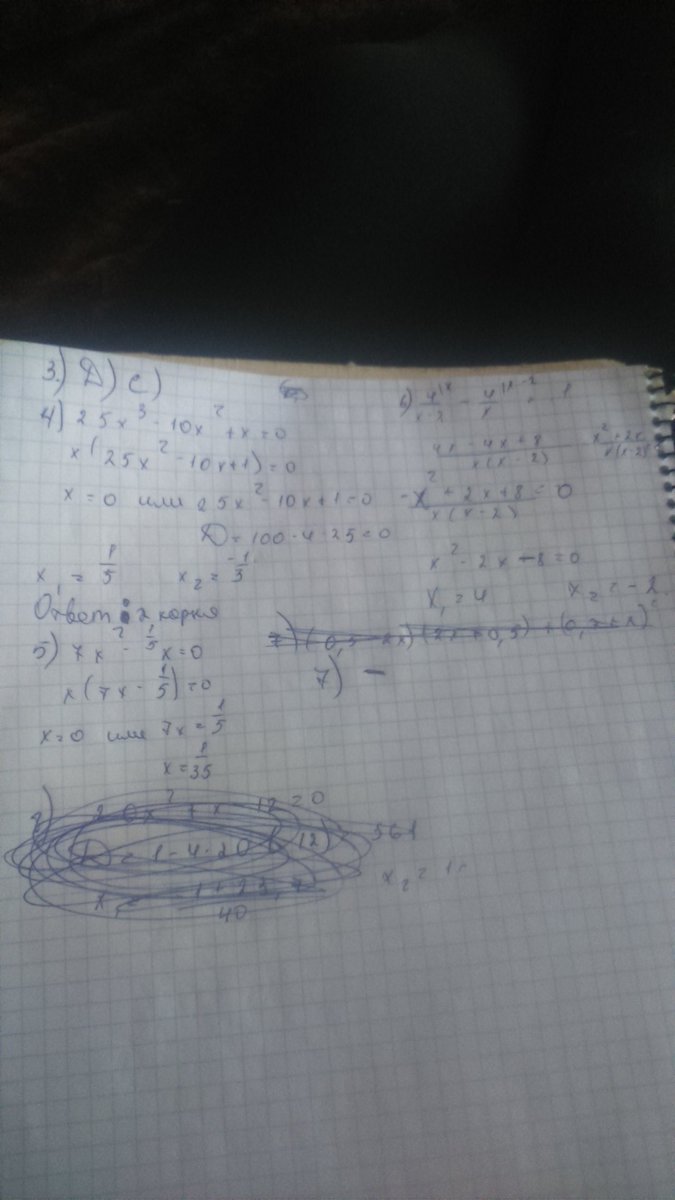 3.) D) C)
4) 25x³ - 10x² + x = 0
x(25x² - 10x + 1) = 0
x = 0 или 25x² - 10x + 1 = 0
D = 100 - 4 · 25 = 0
x₁ = 1/5 x₂ = -1/3
Ответ: 2 корня
5) 7x² - 1/5 x = 0
x(7x - 1/5) = 0
x = 0 или 7x = 1/5
x = 1/35
20x² + x - 12 = 0
D = 1 - 4 · 20 (-12) 561
40
x₂ =
6) 4/x-2 - 4/x = 1
4x - 4x + 8/x(x - 2) x² - 2x/x(x-2)
-x² + 2x + 8/x(x-2) = 0
x² - 2x - 8 = 0
x₁ = 4 x₂ = -2
7) -